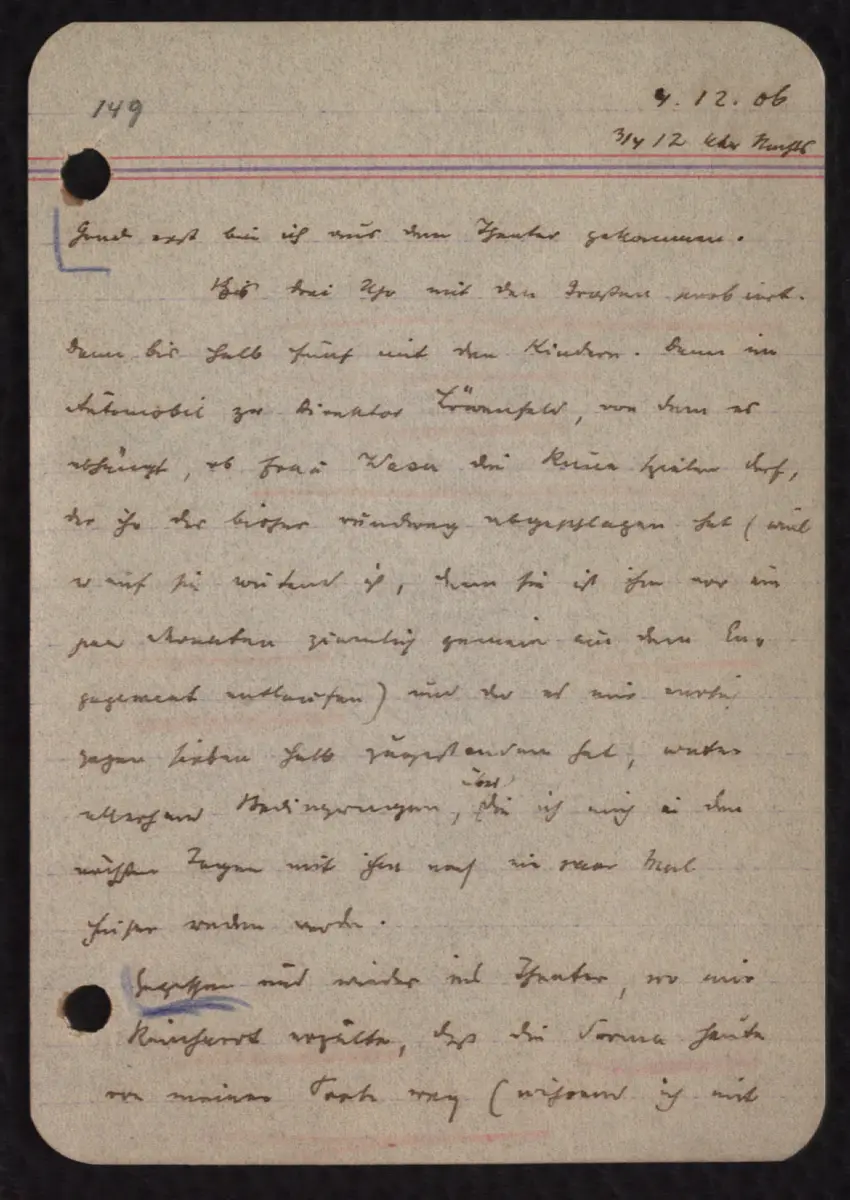 149
4. 12. 06
3/4 12 Uhr Nachts
Grade erst bin ich aus dem Theater gekommen.
Bis drei Uhr mit den Großen probiert.
Dann bis halb fünf mit den Kindern. Dann im
Automobil zu Direktor Löwenfeld, von dem es
abhängt, ob Frau die spielen darf,
der ihr das bisher rundweg abgeschlagen hat (weil
er auf sie wütend ist, denn sie ist ihm vor ein
paar Monaten ziemlich gemein aus dem En-
gagement entlaufen) und der es mir
gegen sieben halb zugestanden hat, unter
allerhand Bedingungen, über die ich mich in den
nächsten Tagen mit ihm noch ein paar Mal
werde.
Gegessen und wieder ins Theater, wo mir
Reinhardt erzälte, daß die Sorma heute
von meiner Probe weg (während ich mit